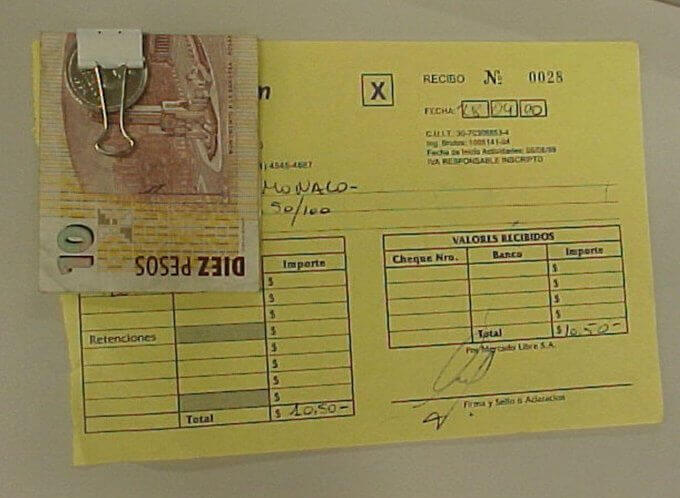 RECIBO Nº 0028
X
FECHA:
C.U.I.T. 30-70308853-4
Ing. Brutos: 1005141-04
Fecha de Inicio Actividades:
IVA RESPONSABLE INSCRIPTO
4545-4687
MONACO-
50/100
10
DIEZ PESOS
Importe
$
$
Retenciones $
$
$
$
Total $ 10.50-
VALORES RECIBIDOS
Cheque Nro. Banco Importe
$
$
$
$
Total $10.50-
Por Mercado Libre S.A.
Firma y Sello ó Aclaración